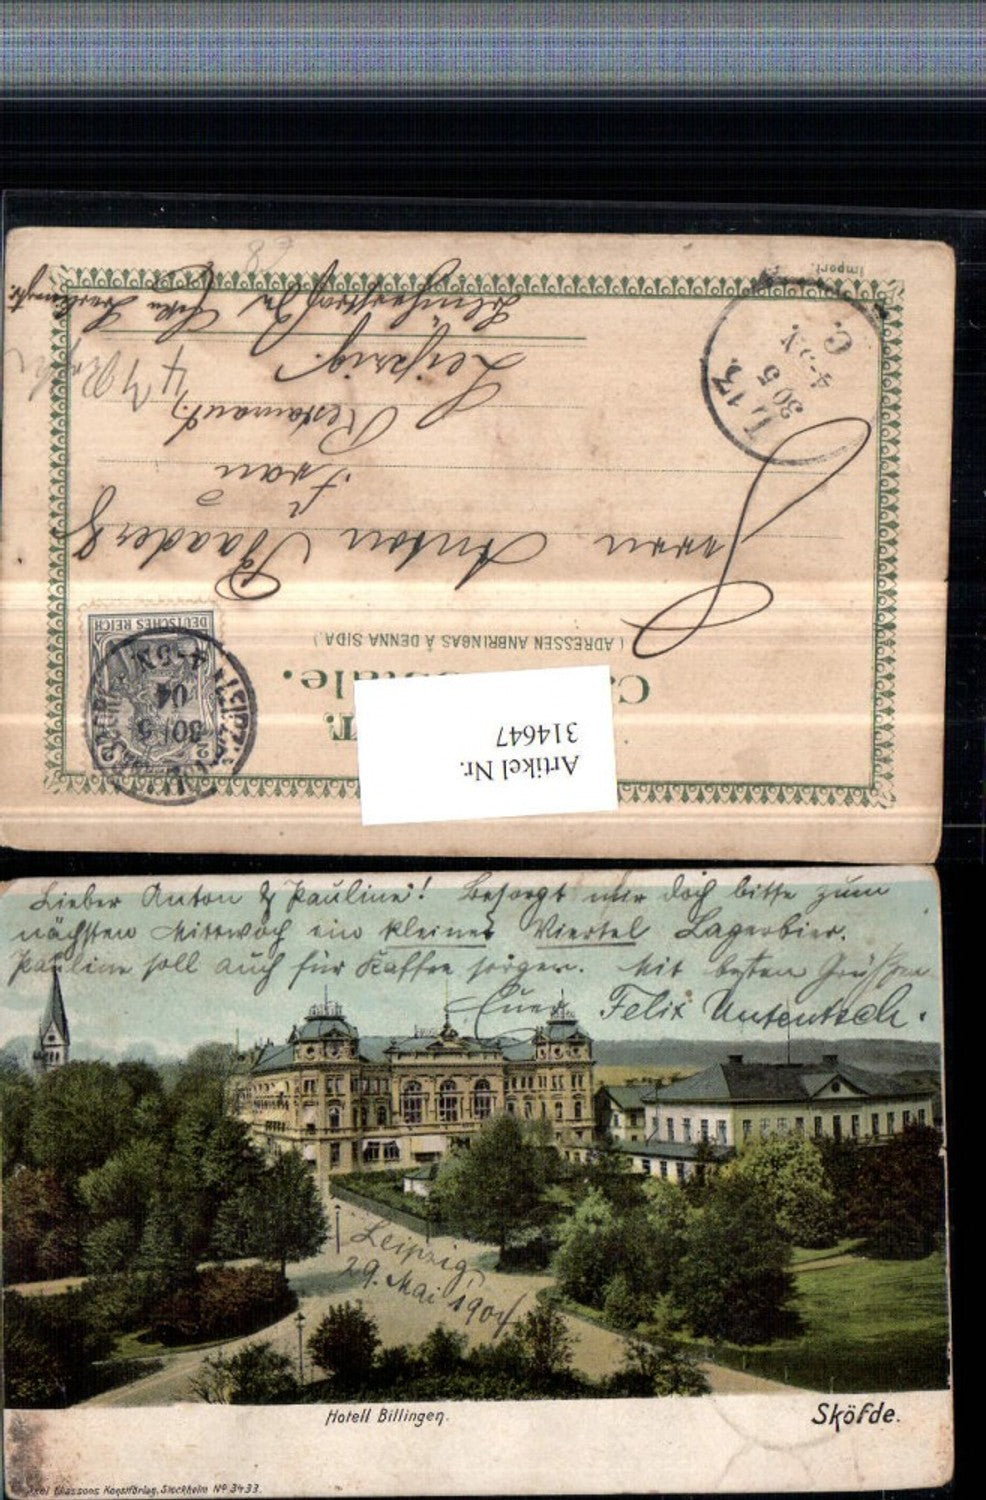 import.
L 13.
30 5
4-5N.
C.
Herrn Anton Baader
Frau
Restaurant
Leipzig.
Artikel Nr.
314647
(ADRESSEN ANBRINGAS Å DENNA SIDA.)
DEUTSCHES REICH
LEIPZIG
30/5
04
4-5N.
Lieber Anton & Pauline! Besorgt mir doch bitte zum
nächsten Mittwoch ein kleines Viertel Lagerbier.
Pauline soll auch für Kaffee sorgen. Mit besten Grüßen
Euer Felix Untentsch.
Leipzig,
29. Mai 1904
Hotell Billingen.
Sköfde.
Axel Eliassons Konstförlag, Stockholm No 3433.